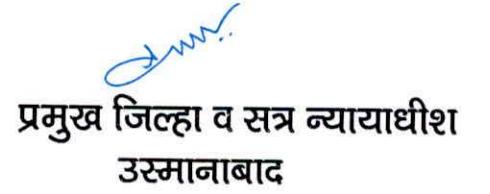 प्रमुख जिल्हा व सत्र न्यायाधीश
उस्मानाबाद